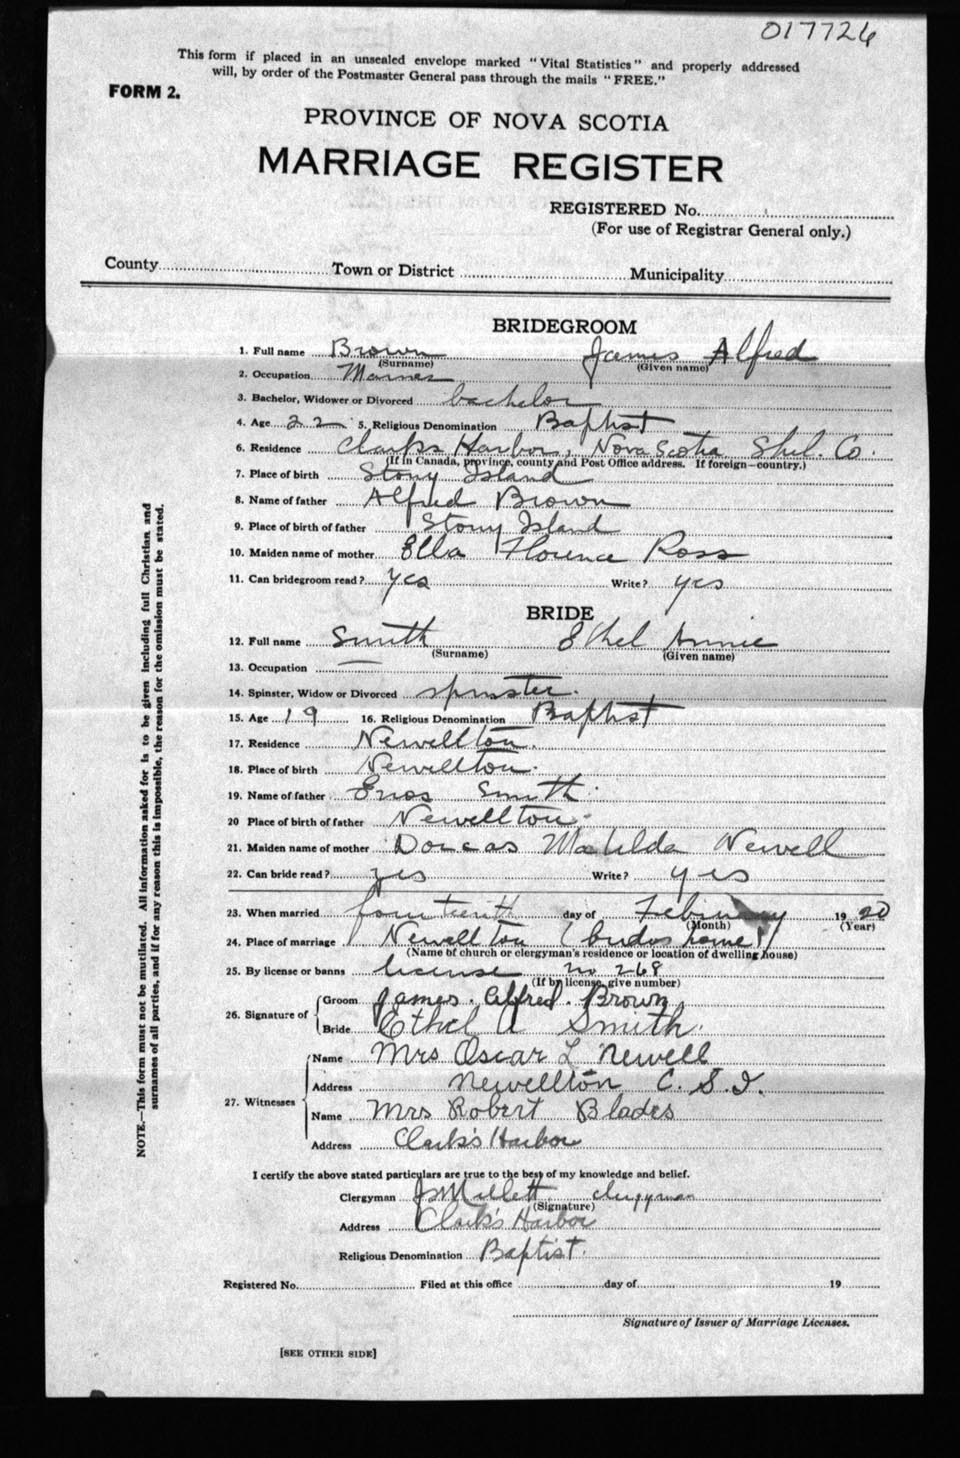 017726
This form if placed in an unsealed envelope marked "Vital Statistics" and properly addressed
will, by order of the Postmaster General pass through the mails "FREE."
FORM 2.
PROVINCE OF NOVA SCOTIA
MARRIAGE REGISTER
REGISTERED No.
(For use of Registrar General only.)
County Town or District Municipality
BRIDEGROOM
1. Full name Brown James Alfred
(Surname) (Given name)
2. Occupation Mariner
3. Bachelor, Widower or Divorced bachelor
4. Age 22 5. Religious Denomination Baptist
6. Residence Clark's Harbor, Nova Scotia Shel. Co.
(If in Canada, province, county and Post Office address. If foreign—country.)
7. Place of birth Stony Island
8. Name of father Alfred Brown
9. Place of birth of father Stony Island
10. Maiden name of mother Ella Florence Ross
11. Can bridegroom read? yes Write? yes
BRIDE
12. Full name Smith Ethel Annie
(Surname) (Given name)
13. Occupation —
14. Spinster, Widow or Divorced spinster.
15. Age 19 16. Religious Denomination Baptist
17. Residence Newellton.
18. Place of birth Newellton.
19. Name of father Enos Smith
20 Place of birth of father Newellton
21. Maiden name of mother Dorcas Matilda Newell
22. Can bride read? yes Write? yes
23. When married fourteenth day of February 1920
(Month) (Year)
24. Place of marriage Newellton (brides home)
(Name of church or clergyman's residence or location of dwelling house)
25. By license or banns license no 268
(If by license, give number)
26. Signature of Groom James. Alfred. Brown
Bride Ethel A Smith.
27. Witnesses Name Mrs Oscar L Newell
Address Newellton C. S. I.
Name Mrs Robert Blades
Address Clark's Harbor
I certify the above stated particulars are true to the best of my knowledge and belief.
Clergyman Millett clergyman
(Signature)
Address Clark's Harbor
Religious Denomination Baptist.
Registered No. Filed at this office day of 19
Signature of Issuer of Marriage Licenses.
[SEE OTHER SIDE]
NOTE.—This form must not be mutilated. All information asked for is to be given including full Christian and
surnames of all parties, and if for any reason this is impossible, the reason for the omission must be stated.